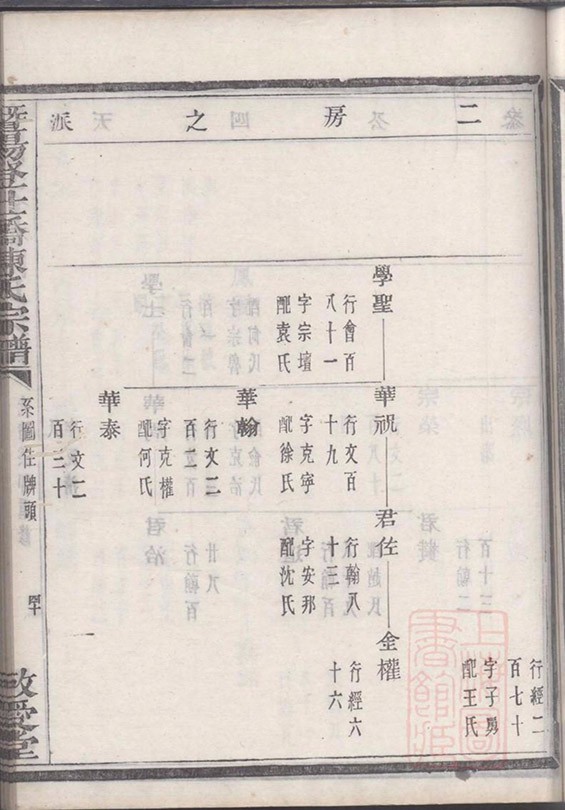 二房之派
行經二
百七十
字子勇
配王氏
學聖
行會百
八十一
字宗壇
配袁氏
華祝
行文百
十九
字克寧
配徐氏
君佐
行翰八
十三
字安邦
配沈氏
金權
行經六
十六
華翰
行文二
百二百
字克權
配何氏
華泰
行文二
百三十
暨陽登仕橋陳氏宗譜
系圖住牌頭
敬愛堂